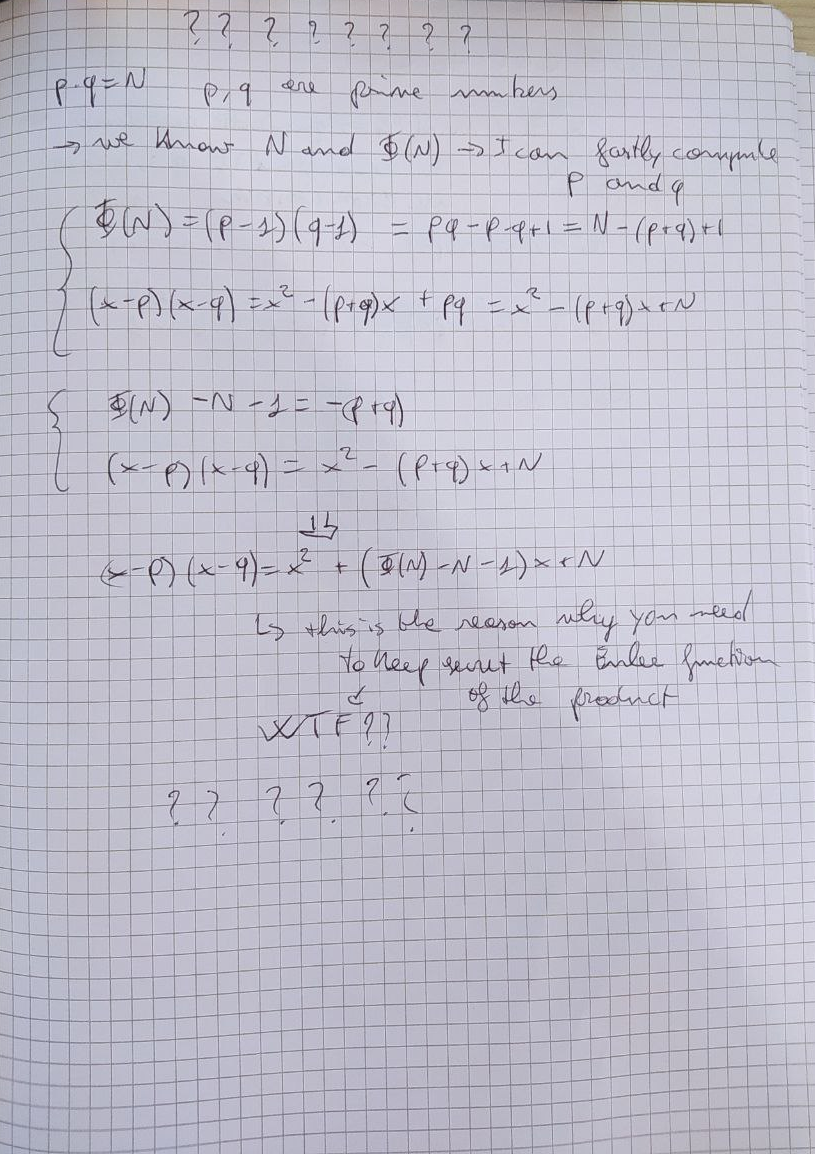 ? ? ? ? ? ? ? ?
p·q=N p,q are prime numbers
→ we know N and Φ(N) → I can fastly compute
p and q
Φ(N) = (p-1)(q-1) = pq-p-q+1 = N-(p+q)+1
(x-p)(x-q) = x² - (p+q)x + pq = x² - (p+q)x+N
Φ(N) -N -1 = -(p+q)
(x-p)(x-q) = x² - (p+q)x+N
⇓
(x-p)(x-q) = x² + (Φ(N)-N-1)x+N
↳ this is the reason why you need
to keep secret the Euler function
of the product
↓
WTF??
? ? ? ? ? ?